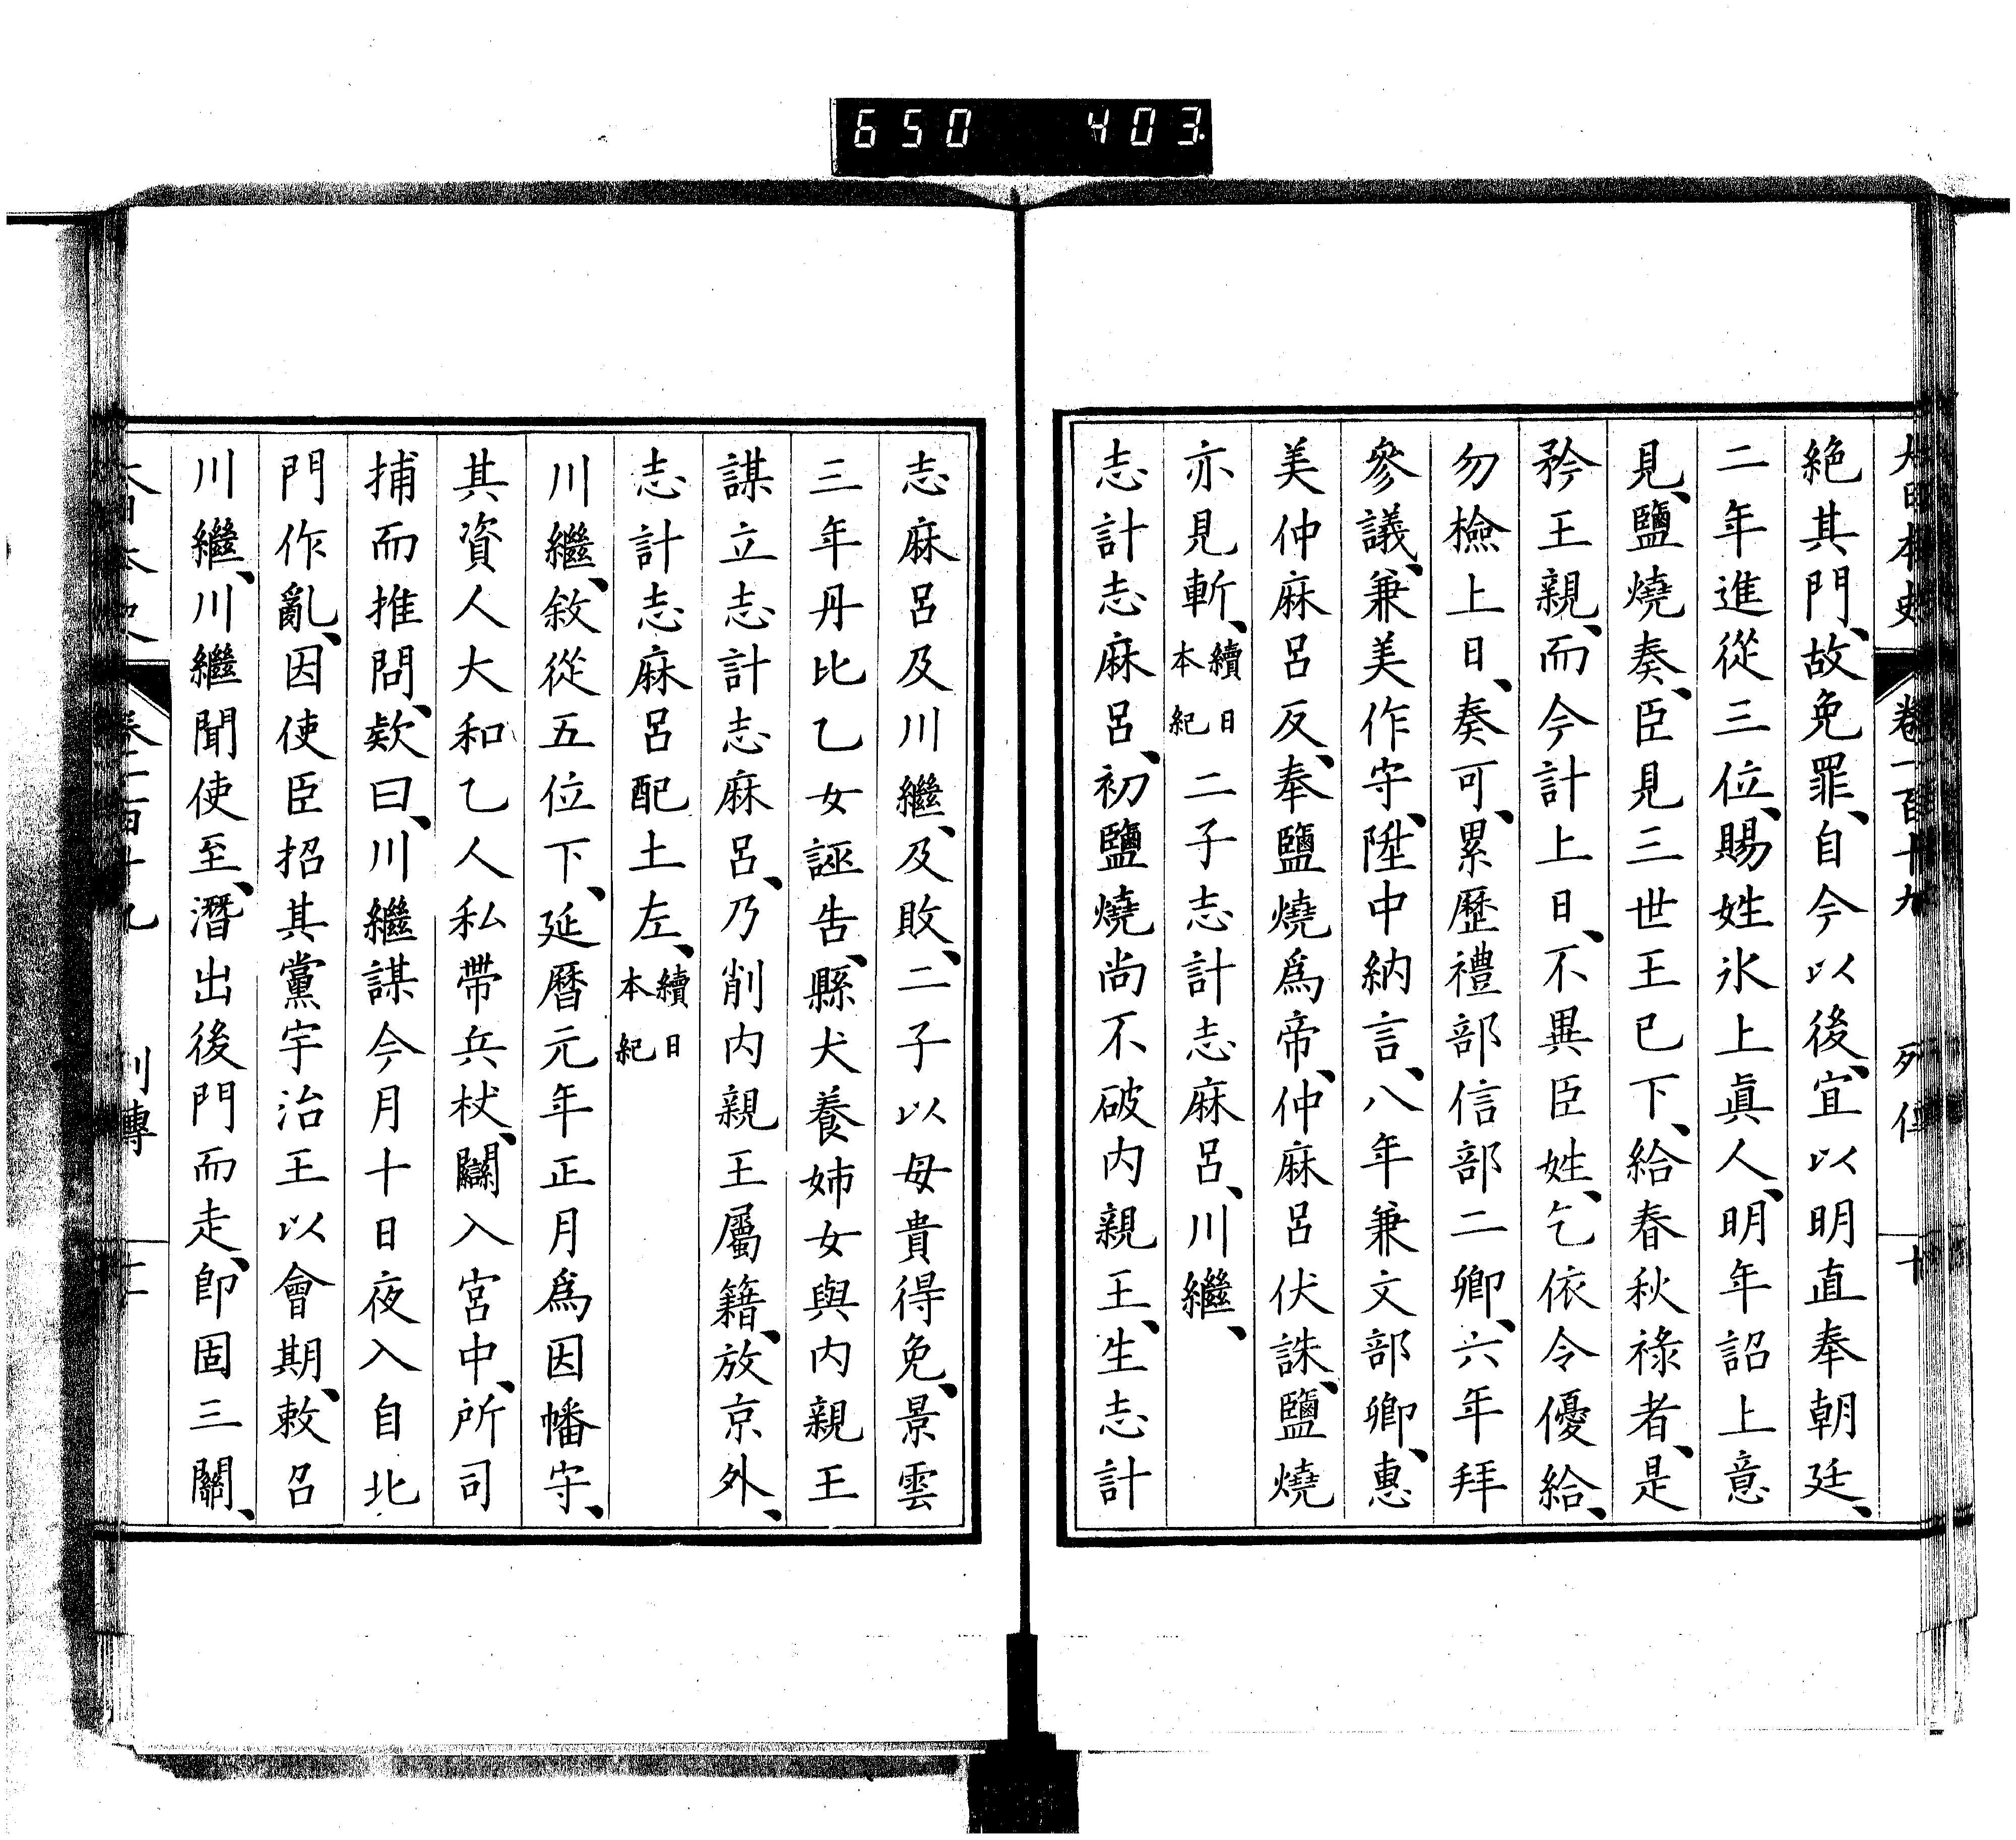 650 403
大日本史 卷一百十九 列傳 十
絶其門、故免罪、自今以後、宜以明直奉朝廷、
二年進從三位、賜姓氷上眞人、明年詔上意
見、鹽燒奏、臣見三世王已下、給春秋祿者、是
矜王親、而今計上日、不異臣姓、乞依令優給、
勿檢上日、奏可、累歷禮部信部二卿、六年拜
參議、兼美作守、陞中納言、八年兼文部卿、惠
美仲麻呂反、奉鹽燒爲帝、仲麻呂伏誅、鹽燒
亦見斬、續日本紀 二子志計志麻呂、川繼、
志計志麻呂、初鹽燒尚不破内親王、生志計
志麻呂及川繼、及敗、二子以母貴得免、景雲
三年丹比乙女誣告、縣犬養姉女與内親王
謀立志計志麻呂、乃削内親王屬籍、放京外、
志計志麻呂配土左、續日本紀
川繼、敘從五位下、延曆元年正月爲因幡守、
其資人大和乙人私帶兵杖、闌入宮中、所司
捕而推問、款曰、川繼謀今月十日夜入自北
門作亂、因使臣招其黨宇治王以會期、敕召
川繼、川繼聞使至、潛出後門而走、卽固三關、
大日本史 卷一百十九 列傳